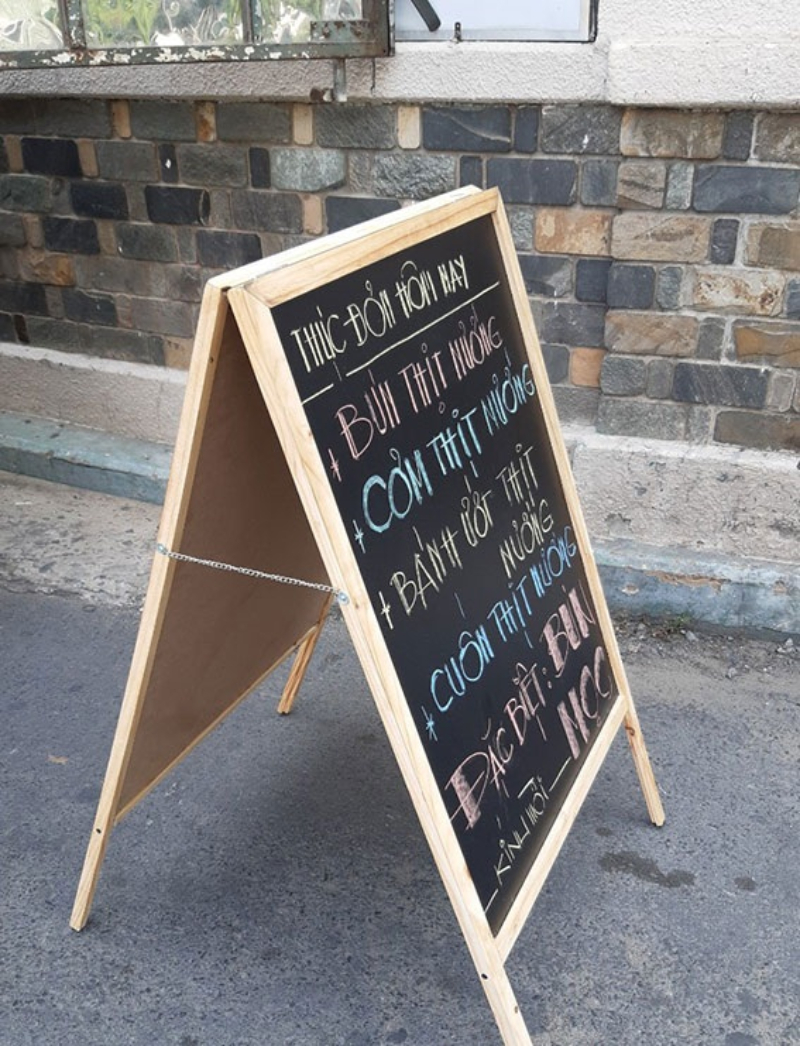 THỰC ĐƠN HÔM NAY
* BÚN THỊT NƯỚNG
* CƠM THỊT NƯỚNG
* BÁNH ƯỚT THỊT
NƯỚNG
* CUỐN THỊT NƯỚNG
ĐẶC BIỆT: BÚN
NỌC
KÍNH MỜI